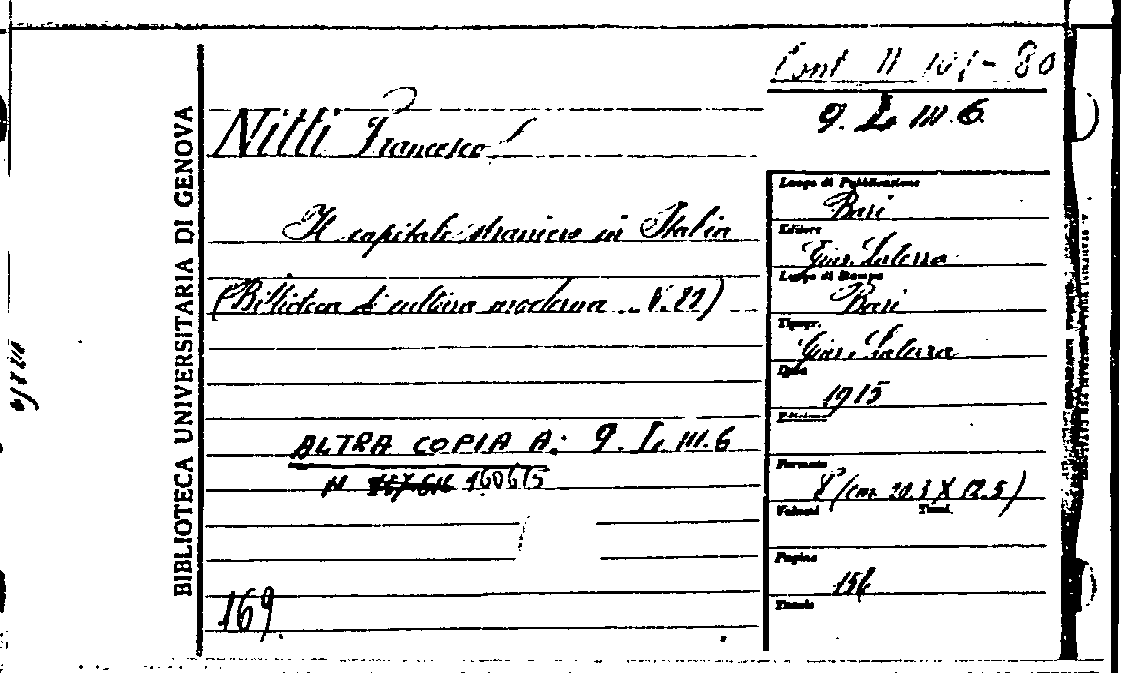 BIBLIOTECA UNIVERSITARIA DI GENOVA
9. L. III. 6
Nitti Francesco
Il capitale straniero in Italia
(Biblioteca di cultura moderna N. 82)
ALTRA COPIA A: 9. L. III. 6
N. 160675
169.
Luogo di Pubblicazione
Bari
Editore
Gius. Laterza
Luogo di Stampa
Bari
Tipogr.
Gius. Laterza
Data
1915
Edizione
Formato
8° (cm. 20.5 X 12.5)
Volumi Tomi
Pagine
156
Tavole